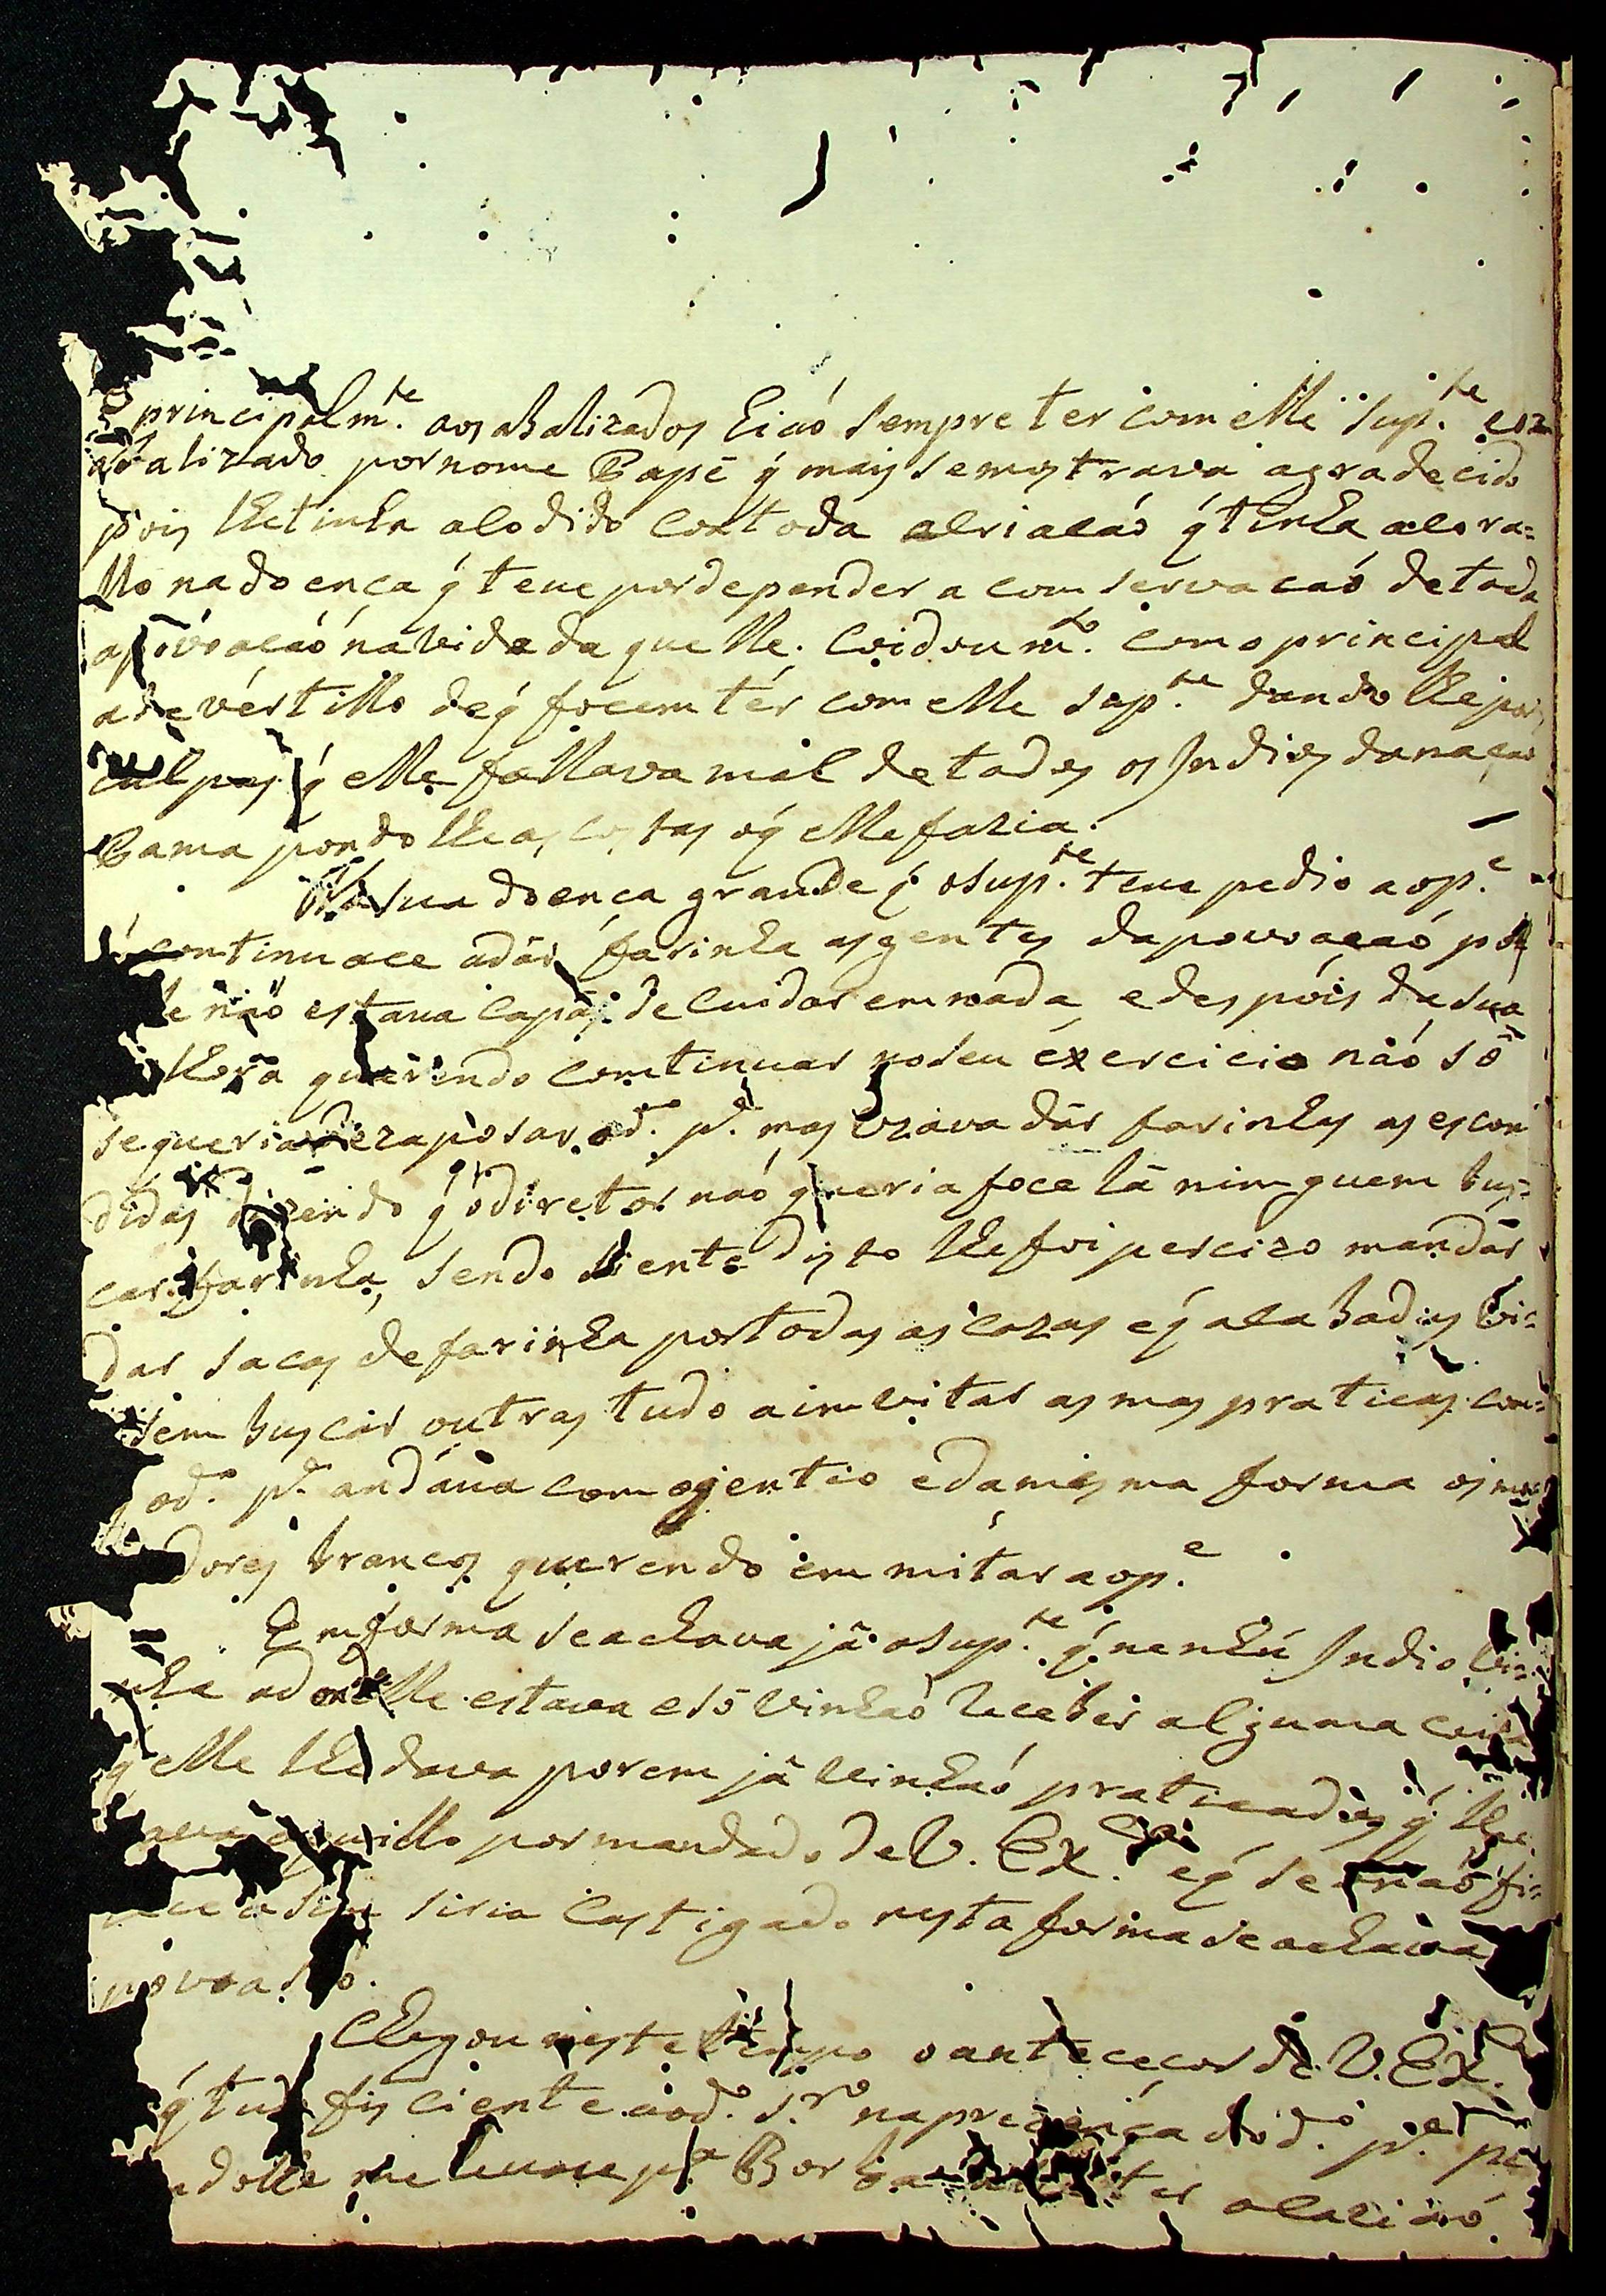 principalm.te aos abalizados hiaó sempre ter com elle sup.te
abalizado por nome Bapē q̃ mais se mostrava agradecido
pois lhe tinha alodido com toda criacaó q̃ tinha a cora=
llo na doenca q̃ teve por depender a comservacaó de toda
a povoacaó na vida da quelle. Coidou m.to como principal
a devertillo de q̃ focem ter com elle sup.te dando lhe por
culpas q̃ elle fallava mal de todos os Indios da nacaó
Bama pondo lhe as costas o q̃ elle fazia.
Na sua doenca grande q̃ o sup.te teve pedio a o p.e
q̃ continuace a dár farinha as gentes da povoacaó por
naó estava capás de cuidar em nada, e despóis da sua
lhora querendo comtinuar no seu exercicio naó só
se queria dezaposar o d.o p.e mas uzava dár farinhas as escon
didas dizendo q̃ o diretor naó queria foce lá nimguem bus=
car farinha, sendo siente disto lhe foi percizo mandár
dar sacas de farinha por todas as cazas e q̃ acabadas vi=
sem buscár outras tudo a imvitar as mas praticas con=
o d.o p.e andáva com o gentio e da mesma forma os mora
dores brancos querendo emmitar a o p.e
Em forma se achava já o sup.te q̃ nenhú Indio vi=
nha adonde elle estava e só vinhaó receber alguma couza
q̃ elle lhe dava porem já vinhaó praticados q̃ lhe
dava aquillo por mandado de V. Ex.cia e q̃ se naó fi=
cece asim siria castigado nesta forma se achava
povoacaó.
Chegou neste tempo o antececor de V. Ex.ca
q̃ tudo fis ciente ao d.o s.r na prezença do d.o p.e pe
dolhe me levace p.a Borba ter a lacicaó.